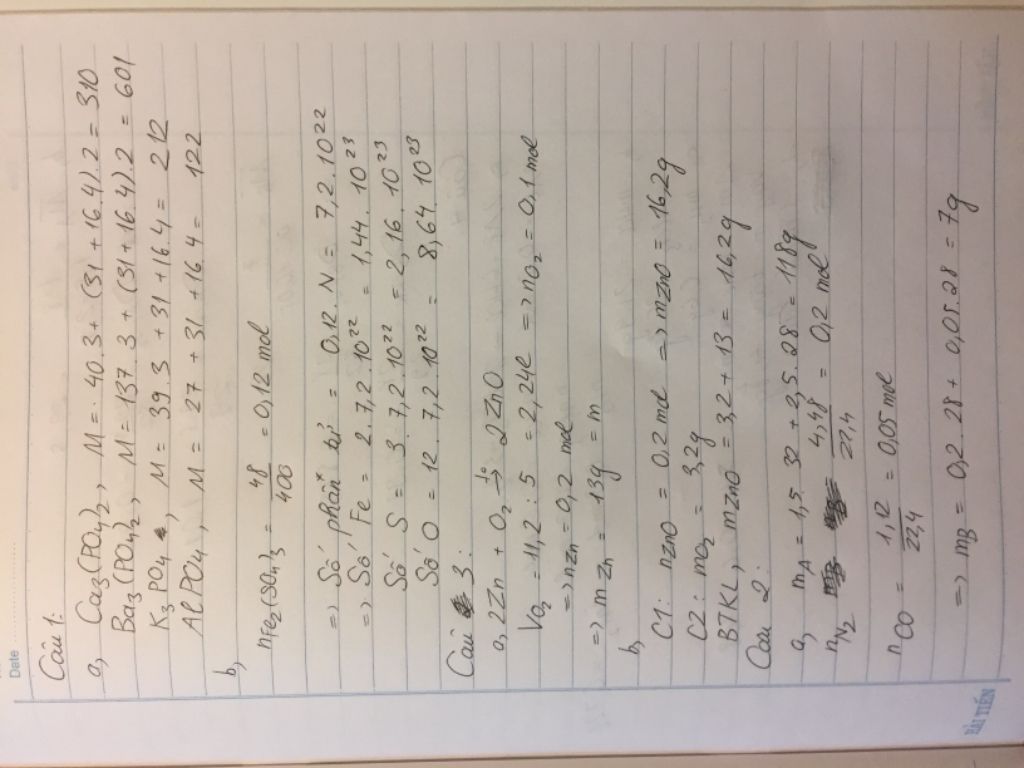 Date
Câu 1:
a, Ca3(PO4)2, M = 40.3 + (31 + 16.4).2 = 310
Ba3(PO4)2, M = 137.3 + (31 + 16.4).2 = 601
K3PO4, M = 39.3 + 31 + 16.4 = 212
AlPO4, M = 27 + 31 + 16.4 = 122
b,
nFe2(SO4)3 = 48/400 = 0,12 mol
=> Số phân tử = 0,12.N = 7,2.10^22
=> Số Fe = 2.7,2.10^22 = 1,44.10^23
Số S = 3.7,2.10^22 = 2,16.10^23
Số O = 12.7,2.10^22 = 8,64.10^23
Câu 3:
a, 2Zn + O2 -t°-> 2ZnO
VO2 = 11,2 : 5 = 2,24l => nO2 = 0,1 mol
=> nZn = 0,2 mol
=> mZn = 13g = m
b,
C1: nZnO = 0,2 mol => mZnO = 16,2g
C2: mO2 = 3,2g
BTKL, mZnO = 3,2 + 13 = 16,2g
Câu 2:
a, mA = 1,5.32 + 2,5.28 = 118g
nN2 = 4,48/22,4 = 0,2 mol
nCO = 1,12/22,4 = 0,05 mol
=> mB = 0,2.28 + 0,05.28 = 7g
HẢI TIẾN